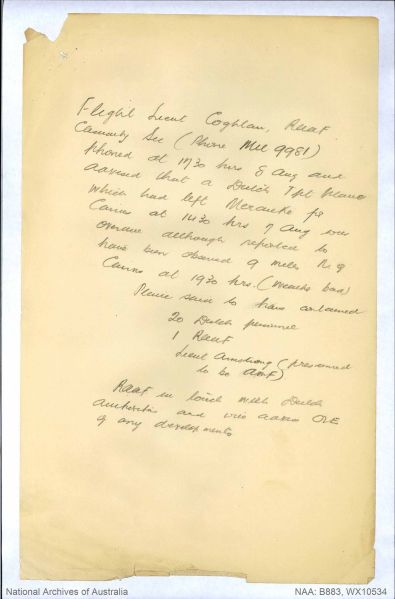 Flight Lieut Coghlan, RAAF
Casualty Sec (Phone MU 9981)
phoned at 1730 hrs 8 Aug and
advised that a Dutch Tpt plane
which had left Merauke for
Cairns at 1430 hrs 7 Aug was
overdue although reported to
have been observed 9 miles N of
Cairns at 1930 hrs. (Weather bad)
Plane said to have contained
20 Dutch personnel
1 RAAF
Lieut Armstrong (presumed
to be AMF)
RAAF in touch with Dutch
authorities and will advise
of any developments
National Archives of Australia
NAA: B883, WX10534